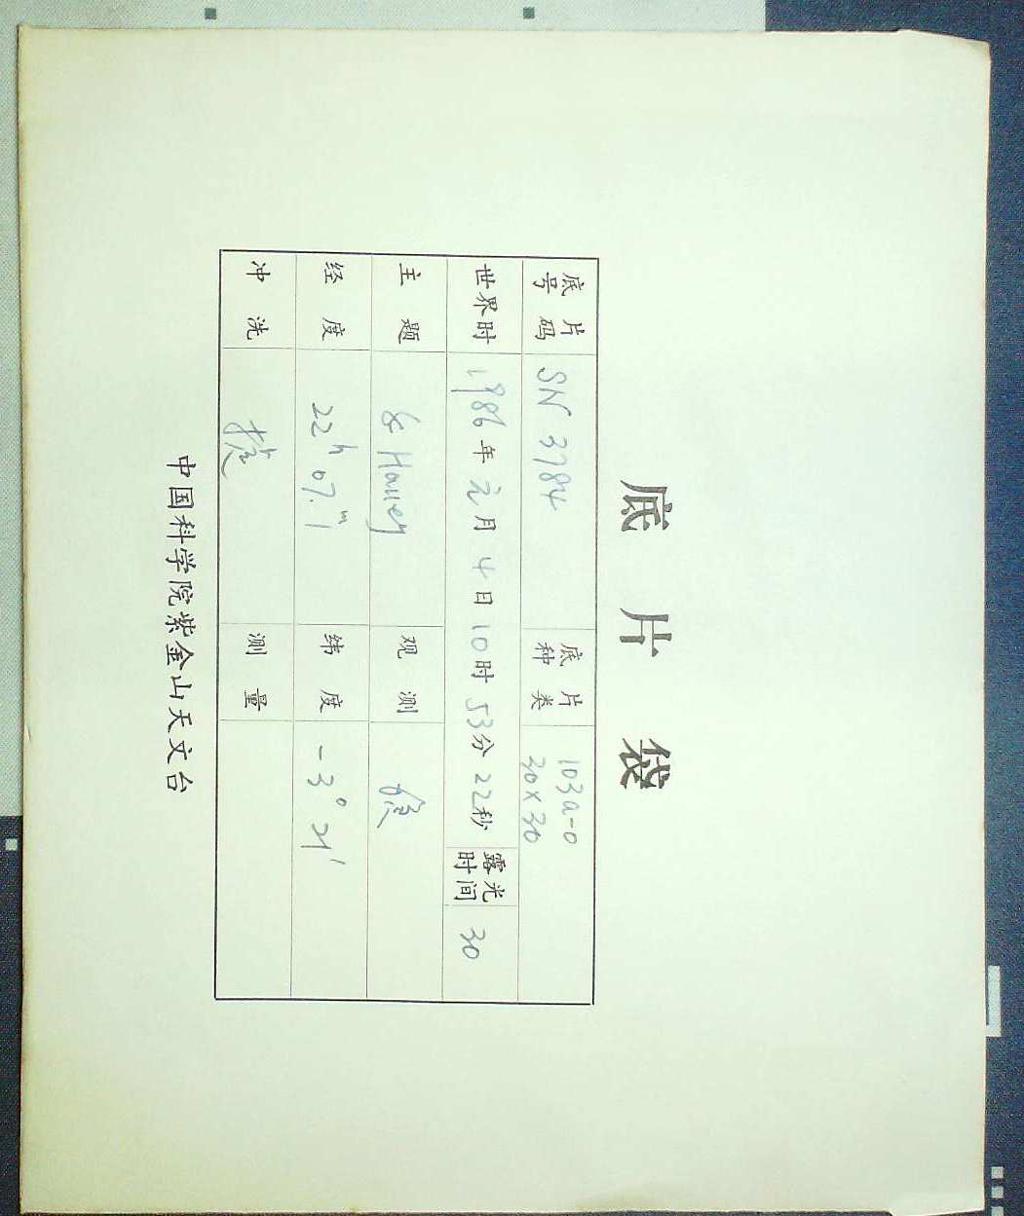 底片袋
底片号码 SN 3784 底片种类 103a-0 30×30
世界时 1986年元月4日10时53分22秒 露光时间 30
主题 & Halley 观测
经度 22h 07.m1 纬度 -3° 21'
冲洗 测量
中国科学院紫金山天文台